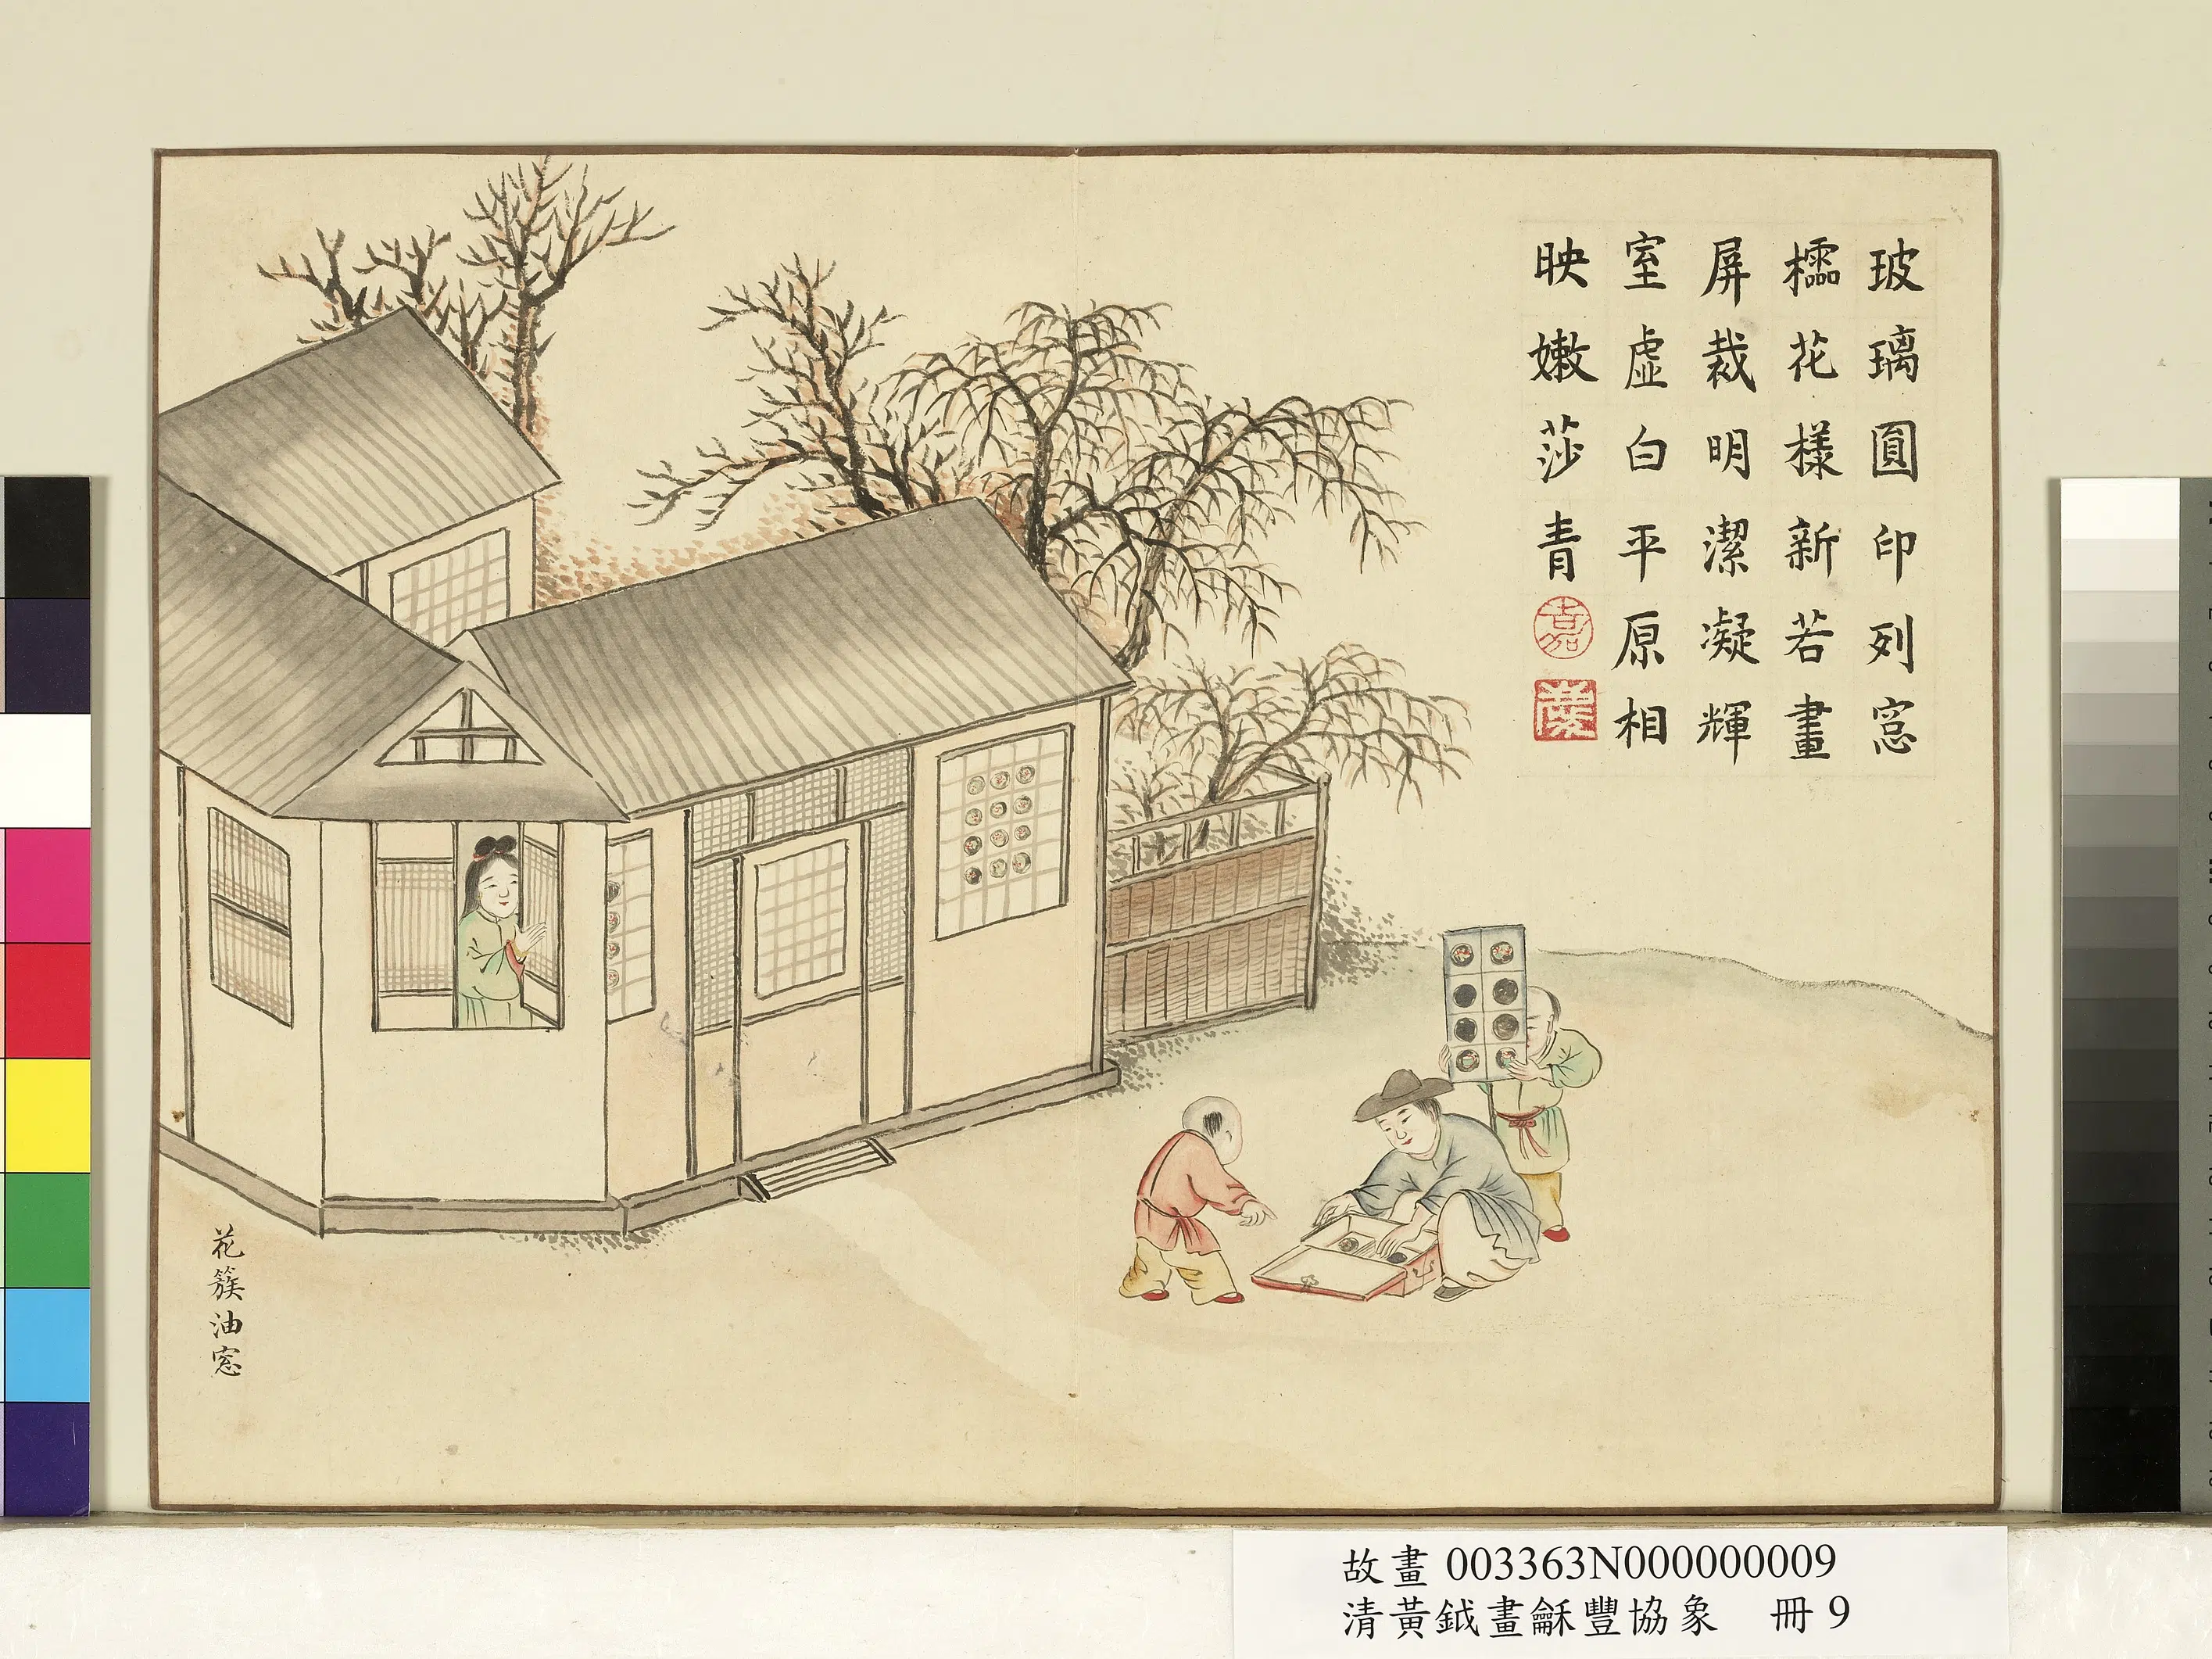 玻璃圓印列窓
櫺花樣新若畫
屏裁明潔凝輝
室虛白平原相
映嫩莎青
嘉
花簇油窓
故畫 003363N000000009
清黃鉞畫龢豐協象 冊 9